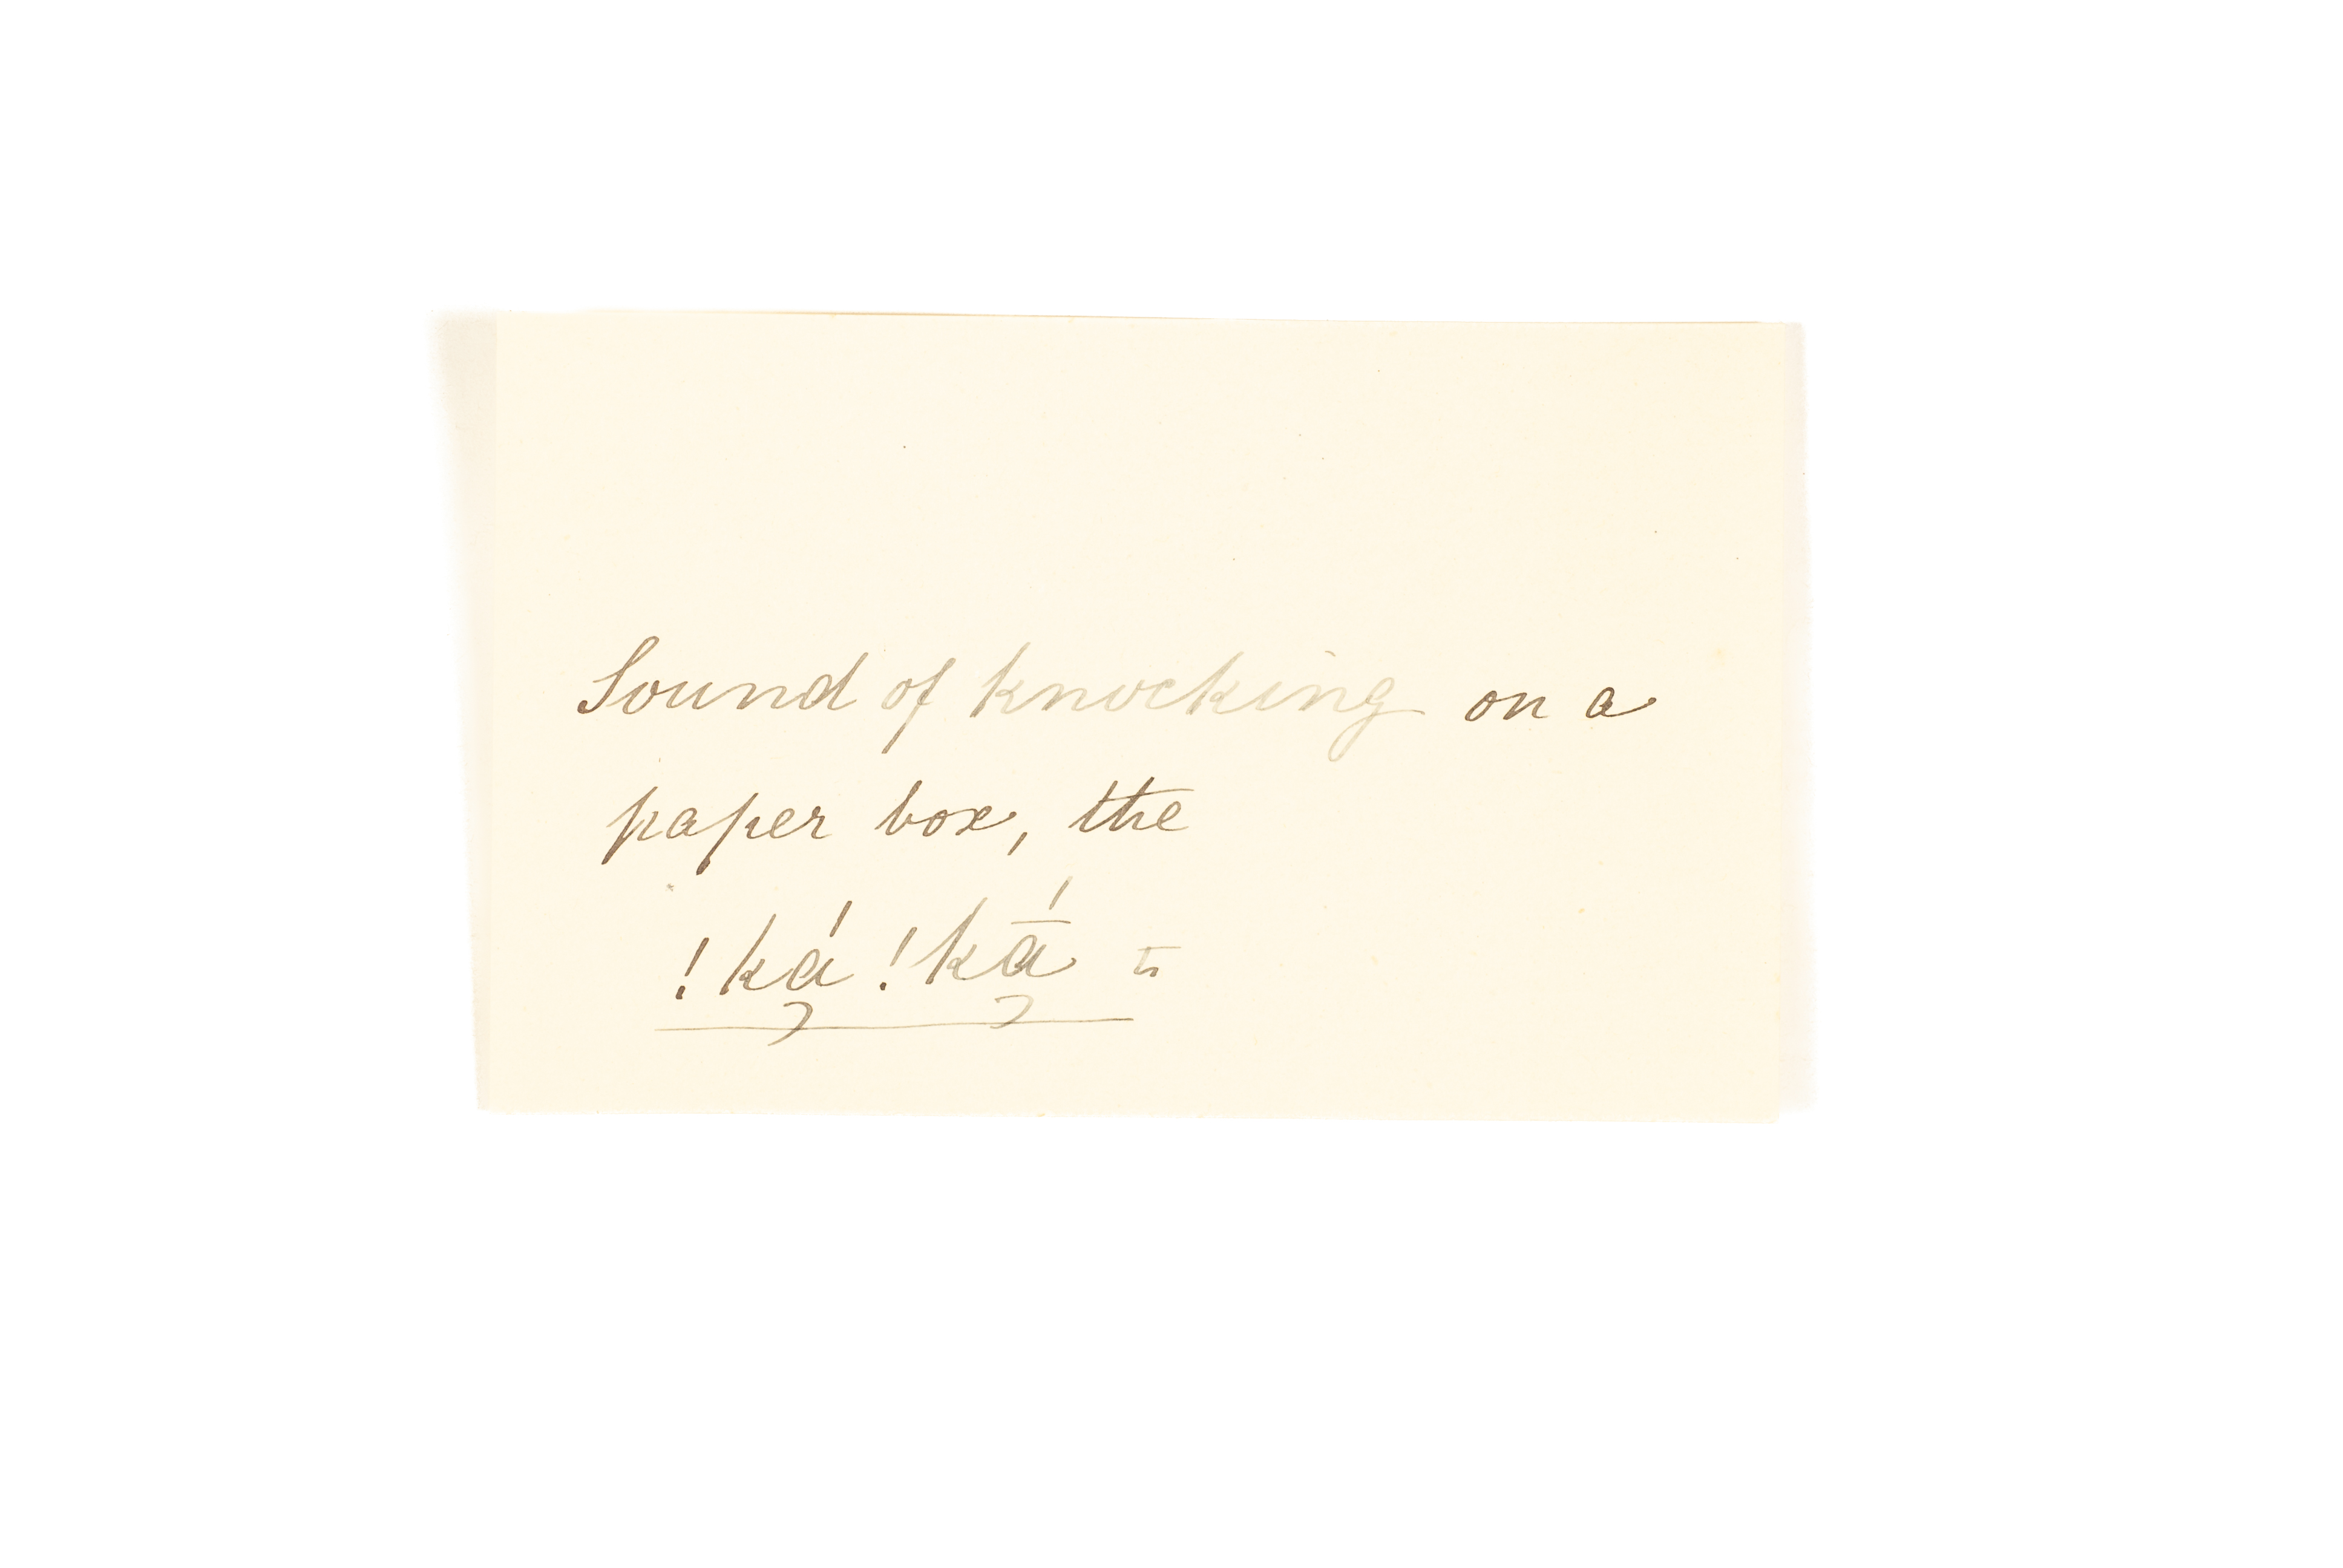 Sound of knocking on a
paper box, the
!ká̡ !kā̡́ ꞊